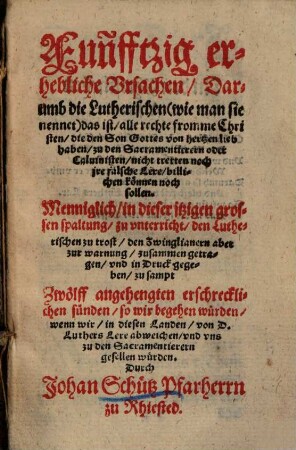 Fuñfftzig er-
hebliche Vrsachen/ Dar-
umb die Lutherischen (wie man sie
nennet) das ist/ alle rechte fromme Chri
sten/ die den Son Gottes von hertzen lieb
haben/ zu den Sacramentierern oder
Caluinisten/ nicht tretten noch
jre falsche Lere/ billi-
chen können noch
sollen.
Menniglich/ in dieser jtzigen gros-
sen spaltung/ zu vnterricht/ den Luthe-
rischen zu trost/ den Zwinglianern aber
zur warnung/ zusammen getra-
gen/ vnd in Druck gege-
ben/ zu sampt
Zwölff angehengten erschreckli-
chen sünden/ so wir begehen würden/
wenn wir/ in diesen Landen/ von D.
Luthers Lere abweichen/ vnd vns
zu den Sacramentierern
gesellen würden.
Durch
Johan Schütz Pfarherrn
zu Rhiested.